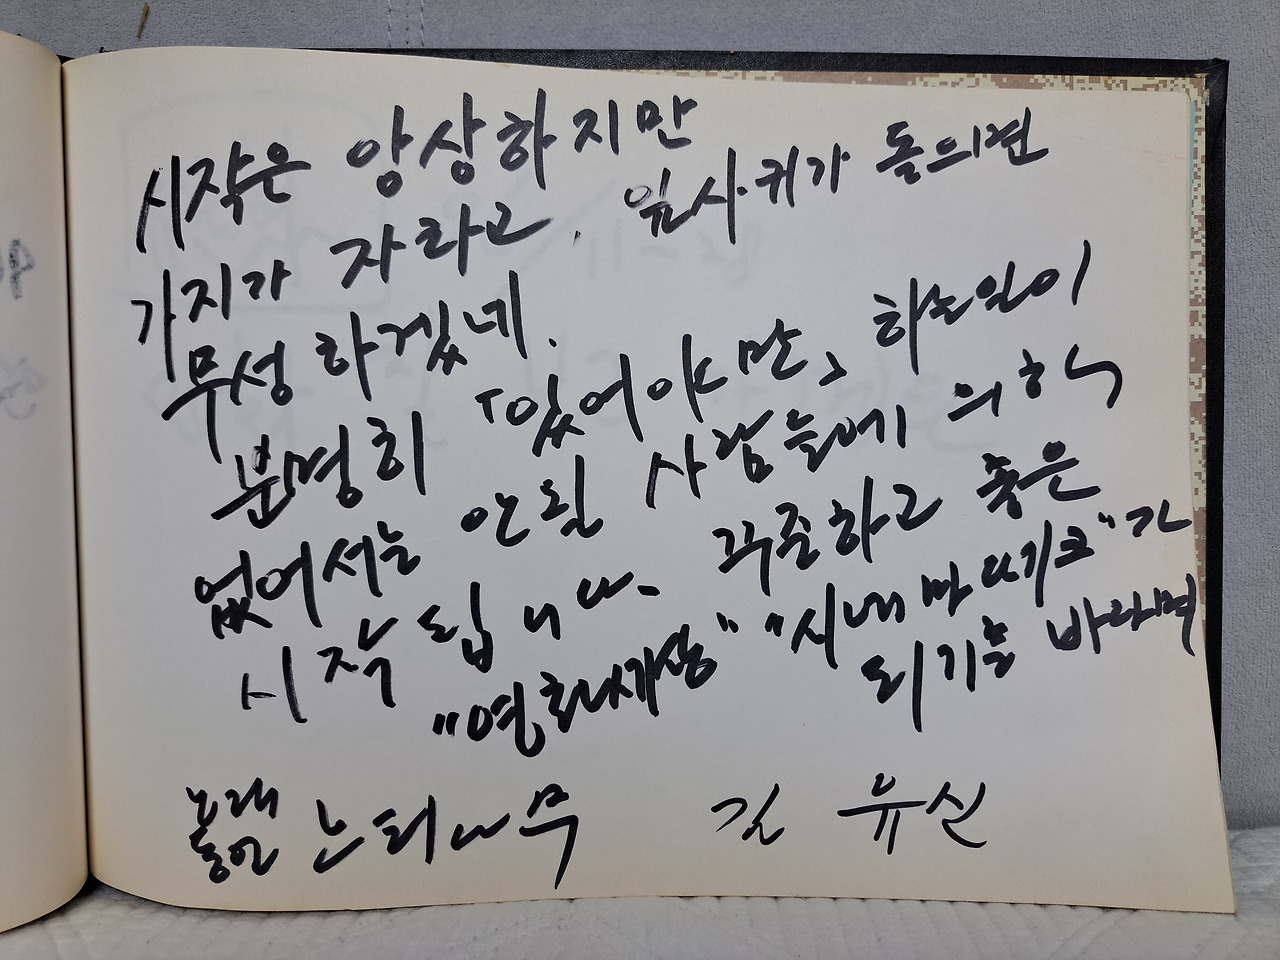 시작은 앙상하지만
가지가 자라고, 잎사귀가 돋으면
무성 하겠네.
분명히 「있어야만」 하는일이
없어서는 안될 사람들에 의해
시작 됩니다. 꾸준하고 좋은
"영화세상" "시네마 다기크"가
되기를 바라며
노래
동인 느티나무 김 유신